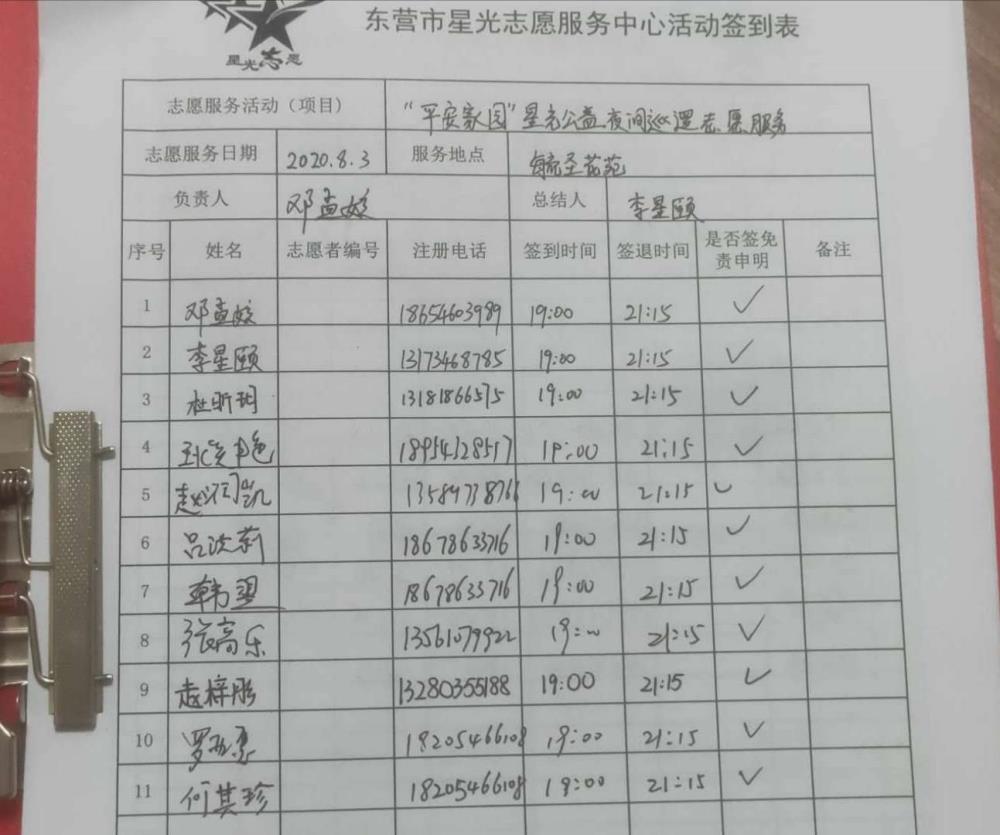 星光志愿
东营市星光志愿服务中心活动签到表
志愿服务活动（项目） "平安家园"星光公益夜间巡逻志愿服务
志愿服务日期 2020.8.3 服务地点 毓圣花苑
负责人 邓孟姣 总结人 李星颐
序号 姓名 志愿者编号 注册电话 签到时间 签退时间 是否签免责申明 备注
1 邓孟姣 18654603989 19:00 21:15 ✓
2 李星颐 13173468785 19:00 21:15 ✓
3 杜昕玥 13181866575 19:00 21:15 ✓
4 18954128517 19:00 21:15 ✓
5 赵 凯 1358973876 19:00 21:15 ✓
6 吕 莉 18678633716 19:00 21:15 ✓
7 韩翌 18678633716 19:00 21:15 ✓
8 张高乐 13561079922 19:00 21:15 ✓
9 赵梓彤 13280355188 19:00 21:15 ✓
10 罗 18205466108 19:00 21:15 ✓
11 何其珍 18205466108 19:00 21:15 ✓